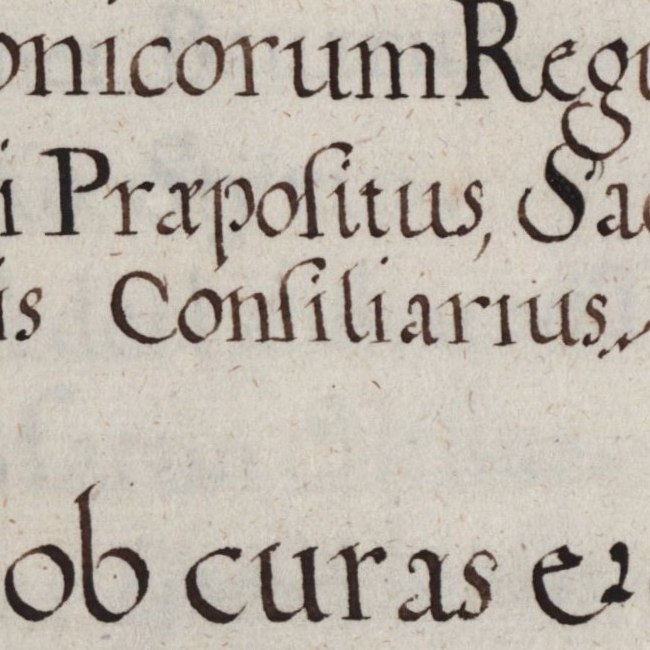 onicorum Regu
i Præpoſitus, Sac
is Conſiliarius,
ob curas &